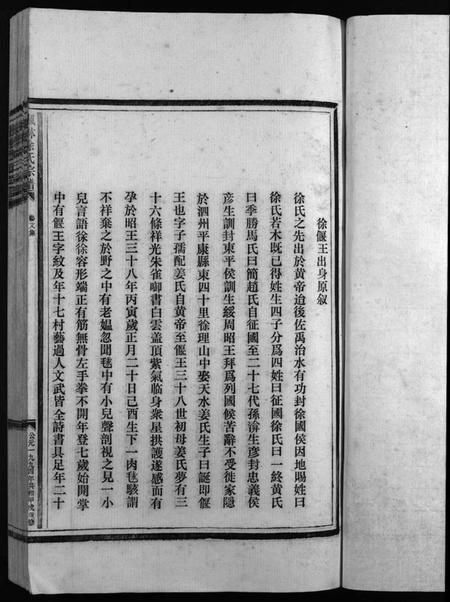 徐偃王出身原叙
徐氏之先出於黄帝迨後佐禹治水有功封徐國侯因地賜姓曰
徐氏若木既已得姓生四子分爲四姓曰征國徐氏曰一終黄氏
曰季勝馬氏曰簡趙氏自征國至二十七代孫渰生彦封忠義侯
彦生訓封東平侯訓生綏周昭王拜爲列國候苦辭不受徙家隱
於泗州平康縣東四十里徐理山中娶天水姜氏生子曰誕即偃
王也字子孺配姜氏自黄帝至偃王三十八世初母姜氏夢有三
十六條祥光朱雀啣書白雲盖頂紫氣临身衆星拱護遂感而有
孕於昭王三十八年丙寅歲正月二十日己酉生下一肉毬駭謂
不祥棄之於野之中有老媪忽聞毬中有小兒聲剖視之見一小
兒言語徐徐容形端正有筋無骨左手拳不開年登七歲始開掌
中有偃王字紋及年十七村藝過人文武皆全詩書具足年二十
徐氏宗譜
藝文集
公元一九九四年